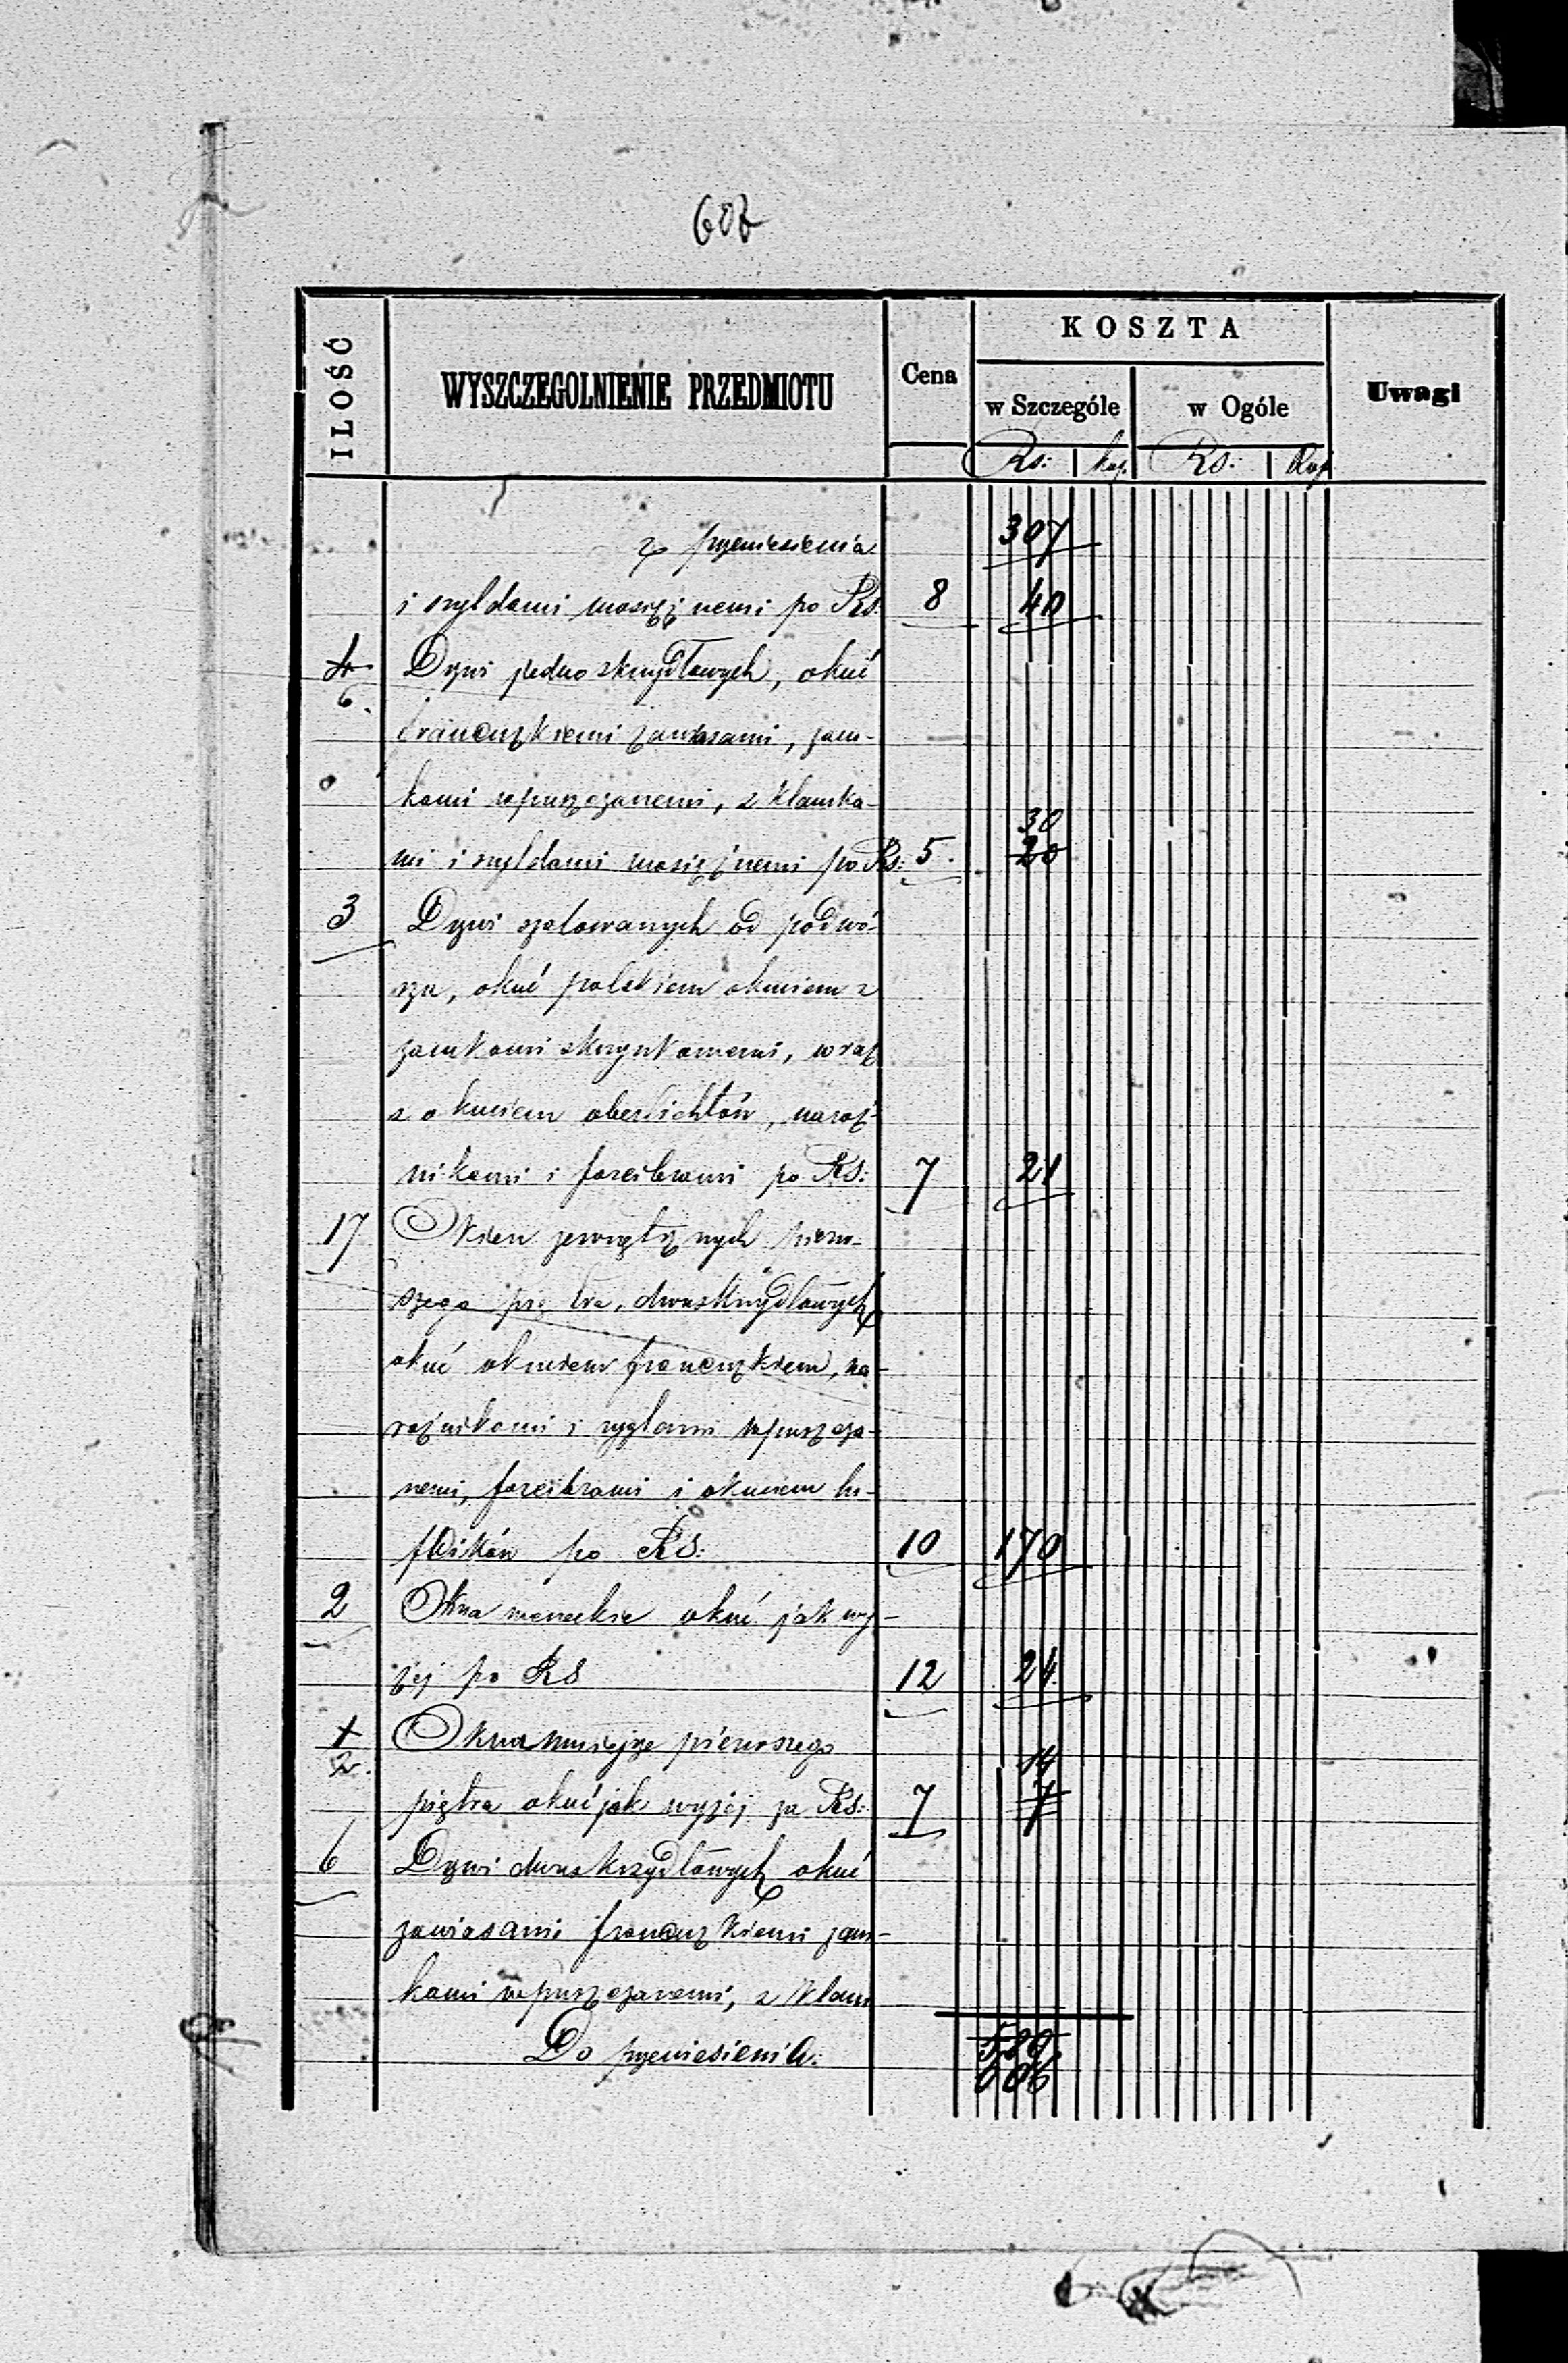 607
ILOŚĆ WYSZCZEGOLNIENIE PRZEDMIOTU Cena KOSZTA Uwagi
w Szczególe w Ogóle
Rs: kop. Rs: Kop.
z przeniesienia 307
i szyldami mosiężnemi po Rs. 8 40
4 Drzwi jednoskrzydłowych, okuć
6.
francuzkiemi zawiasami, zam-
kami wpuszczanemi, z klamka-
30
mi i szyldami mosiężnemi po Rs: 5. 20
3 Drzwi szalowanych od podwó-
rza, okuć polskiem okuciem z
zamkami skrzynkowemi, wraz
z okuciem oberlichtów, naroż-
nikami i foreibrami po Rs: 7 21
17 Okien zewnętrznych pierw-
szego piętra, dwuskrzydłowych
okuć okuciem francuzkiem, na-
rożnikami i ryglami wpuszcza-
nemi, foreibrami i okuciem lu-
fcików po Rs: 10 170
2 Okna weneckie okuć jak wy-
żej po Rs 12 24.
1 Okna mniejsze pierwszego
2. 14
piętra okuć jak wyżej za Rs: 7 7
6 Drzwi dwuskrzydłowych okuć
zawiasami francuzkiemi zam-
kami wpuszczanemi, z klam
Do przeniesienia: 589
606